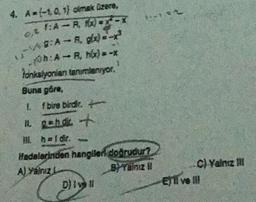 4. A = {-1, 0, 1} olmak üzere,
f : A → R, f(x) = x⁴ - x
g : A → R, g(x) = -x³
h : A → R, h(x) = -x
fonksiyonları tanımlanıyor.
Buna göre,
I. f bire birdir. +
II. g = h dir. +
III. h = I dir. -
ifadelerinden hangileri doğrudur?
A) Yalnız I B) Yalnız II C) Yalnız III
D) I ve II E) II ve III